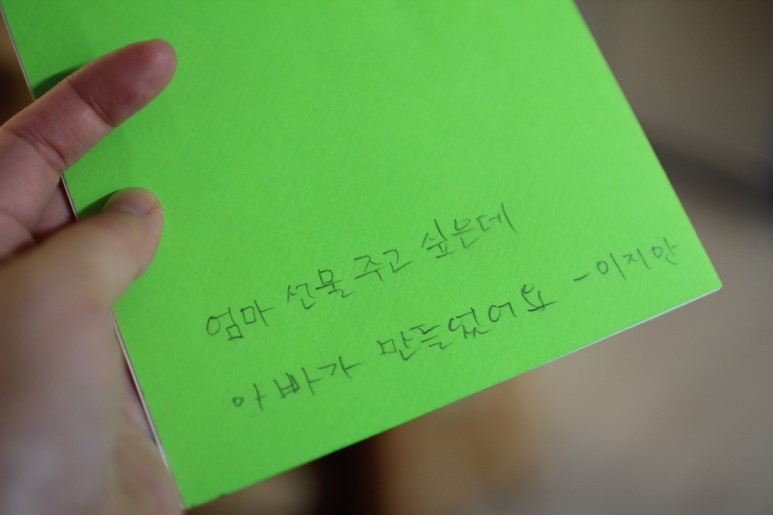 엄마 선물 주고 싶은데
아빠가 만들었어요 - 이지안